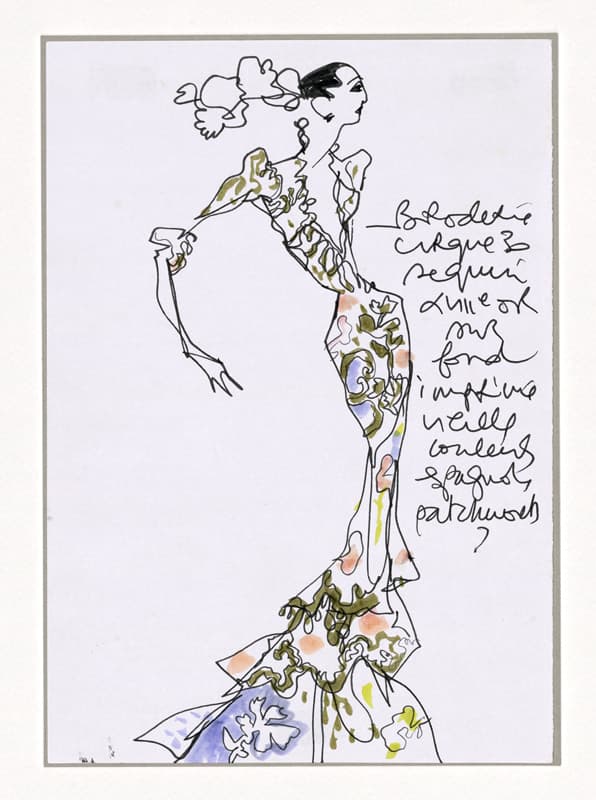 Broderie
cirque
sequin
or
sur
fond
imprimé
vieille
couleurs
espagnols
patchwork
?